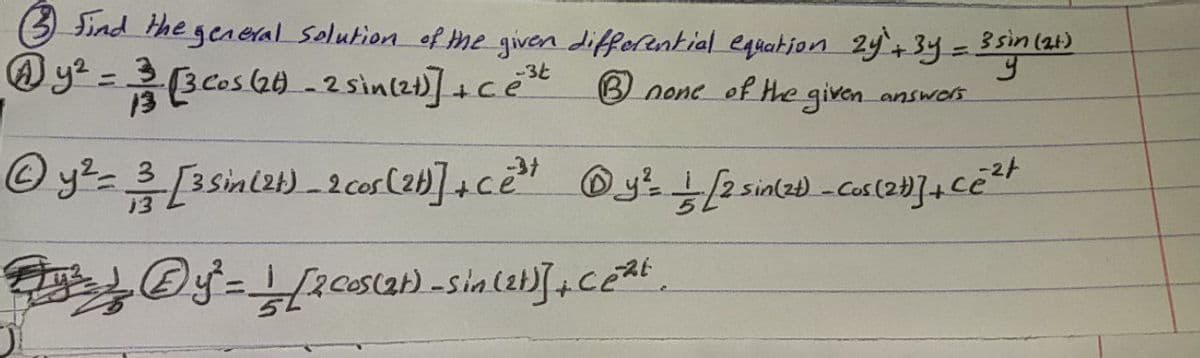 ③ Find the general solution of the given differential equation 2y' + 3y = 3 sin(2t)/y
Ⓐ y² = 3/13 [3 cos(2t) - 2 sin(2t)] + c e^-3t Ⓑ none of the given answers
Ⓒ y² = 3/13 [3 sin(2t) - 2 cos(2t)] + c e^-3t Ⓓ y² = 1/5 [2 sin(2t) - cos(2t)] + c e^-2t
Ⓔ y² = 1/5 [2 cos(2t) - sin(2t)] + c e^-2t.